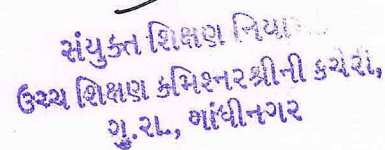 સંયુક્ત શિક્ષણ
ઉચ્ચ શિક્ષણ કમિશ્નરશ્રીની કચેરી,
ગુ.રા., ગાંધીનગર